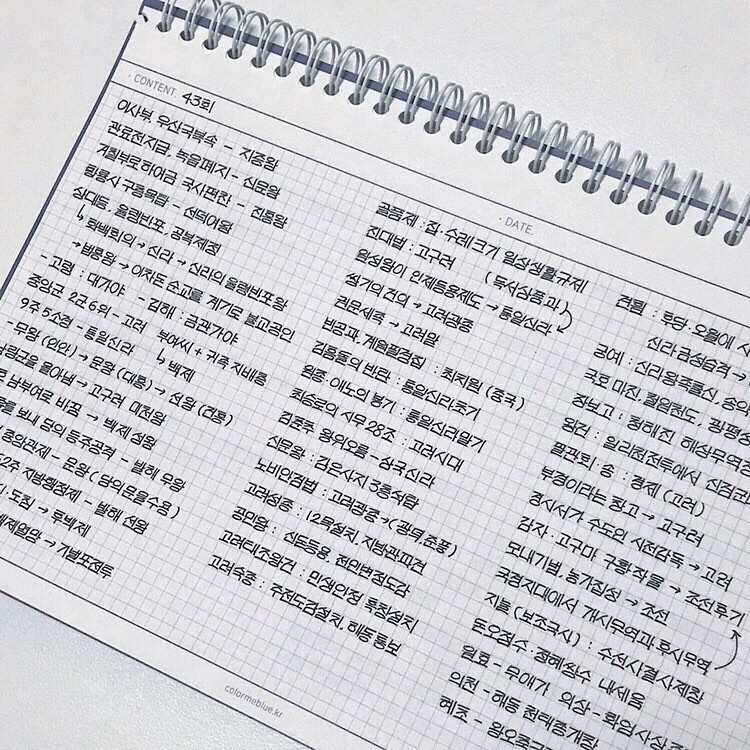 · CONTENT. 43회
· DATE.
이사부, 우산국복속 - 지증왕
관료전지급, 녹읍폐지 - 신문왕
거칠부로하여금 국사편찬 - 진흥왕
황룡사 구층목탑 - 선덕여왕
상대등, 율령반포, 공복제정
↳ 화백회의 → 신라 → 신라의 율령반포왕
→ 법흥왕 → 이차돈 순교를 계기로 불교공인
- 고령 : 대가야 - 김해 : 금관가야
중앙군 2군 6위 - 고려 부여씨 + 귀족 지배층
9주 5소경 - 통일신라 ↳ 백제
- 무왕 (인안) → 문왕 (대흥) → 선왕 (건흥)
낙랑군을 몰아냄 → 고구려 미천왕
남부여로 바꿈 → 백제 성왕
를 보내 당의 등주공격 - 발해 무왕
중앙관제 - 문왕 (당의문물수용)
62주 지방행정제 - 발해 선왕
도침 → 후백제
→ 기벌포전투
골품제 : 집·수레크기 일상생활규제
진대법 : 고구려
원성왕이 인재등용제도 → 통일신라 (독서삼품과)
쌍기의 건의 → 고려광종
권문세족 → 고려말
빈공과, 계원필경집 : 최치원 (중국)
김흠돌의 반란 : 통일신라초기
원종, 애노의 봉기 : 통일신라말기
최승로의 시무 28조 : 고려시대
김효주 왕위오름 - 삼국신라
신문왕 : 감은사지 3층석탑
노비안검법 : 고려광종 → (광덕, 준풍)
고려성종 : 12목설치, 지방관파견
공민왕 : 신돈등용, 전민변정도감
고려태조왕건 : 민생안정 흑창설치
고려숙종 : 주전도감설치, 해동통보
견훤 : 후당·오월에 사
신라 금성습격 →
궁예 : 신라왕족출신, 송악
국호 마진, 철원천도, 광평성
장보고 : 청해진 해상무역
왕건 : 일리천전투에서 신검군
팔관회 송 : 경제 (고려)
부경이라는 창고 → 고구려
경시서가 수도의 시전감독 → 고려
감자·고구마 구황작물 → 조선후기
모내기법, 동가집성 → 조선
국경지대에서 개시무역과 후시무역
지눌 (보조국사) : 수선사결사제창
돈오점수 : 정혜쌍수 내세움
원효 - 무애가 의상 - 화엄사상
의천 - 해동 천태종개창
혜초 - 왕오
colormeblue.kr